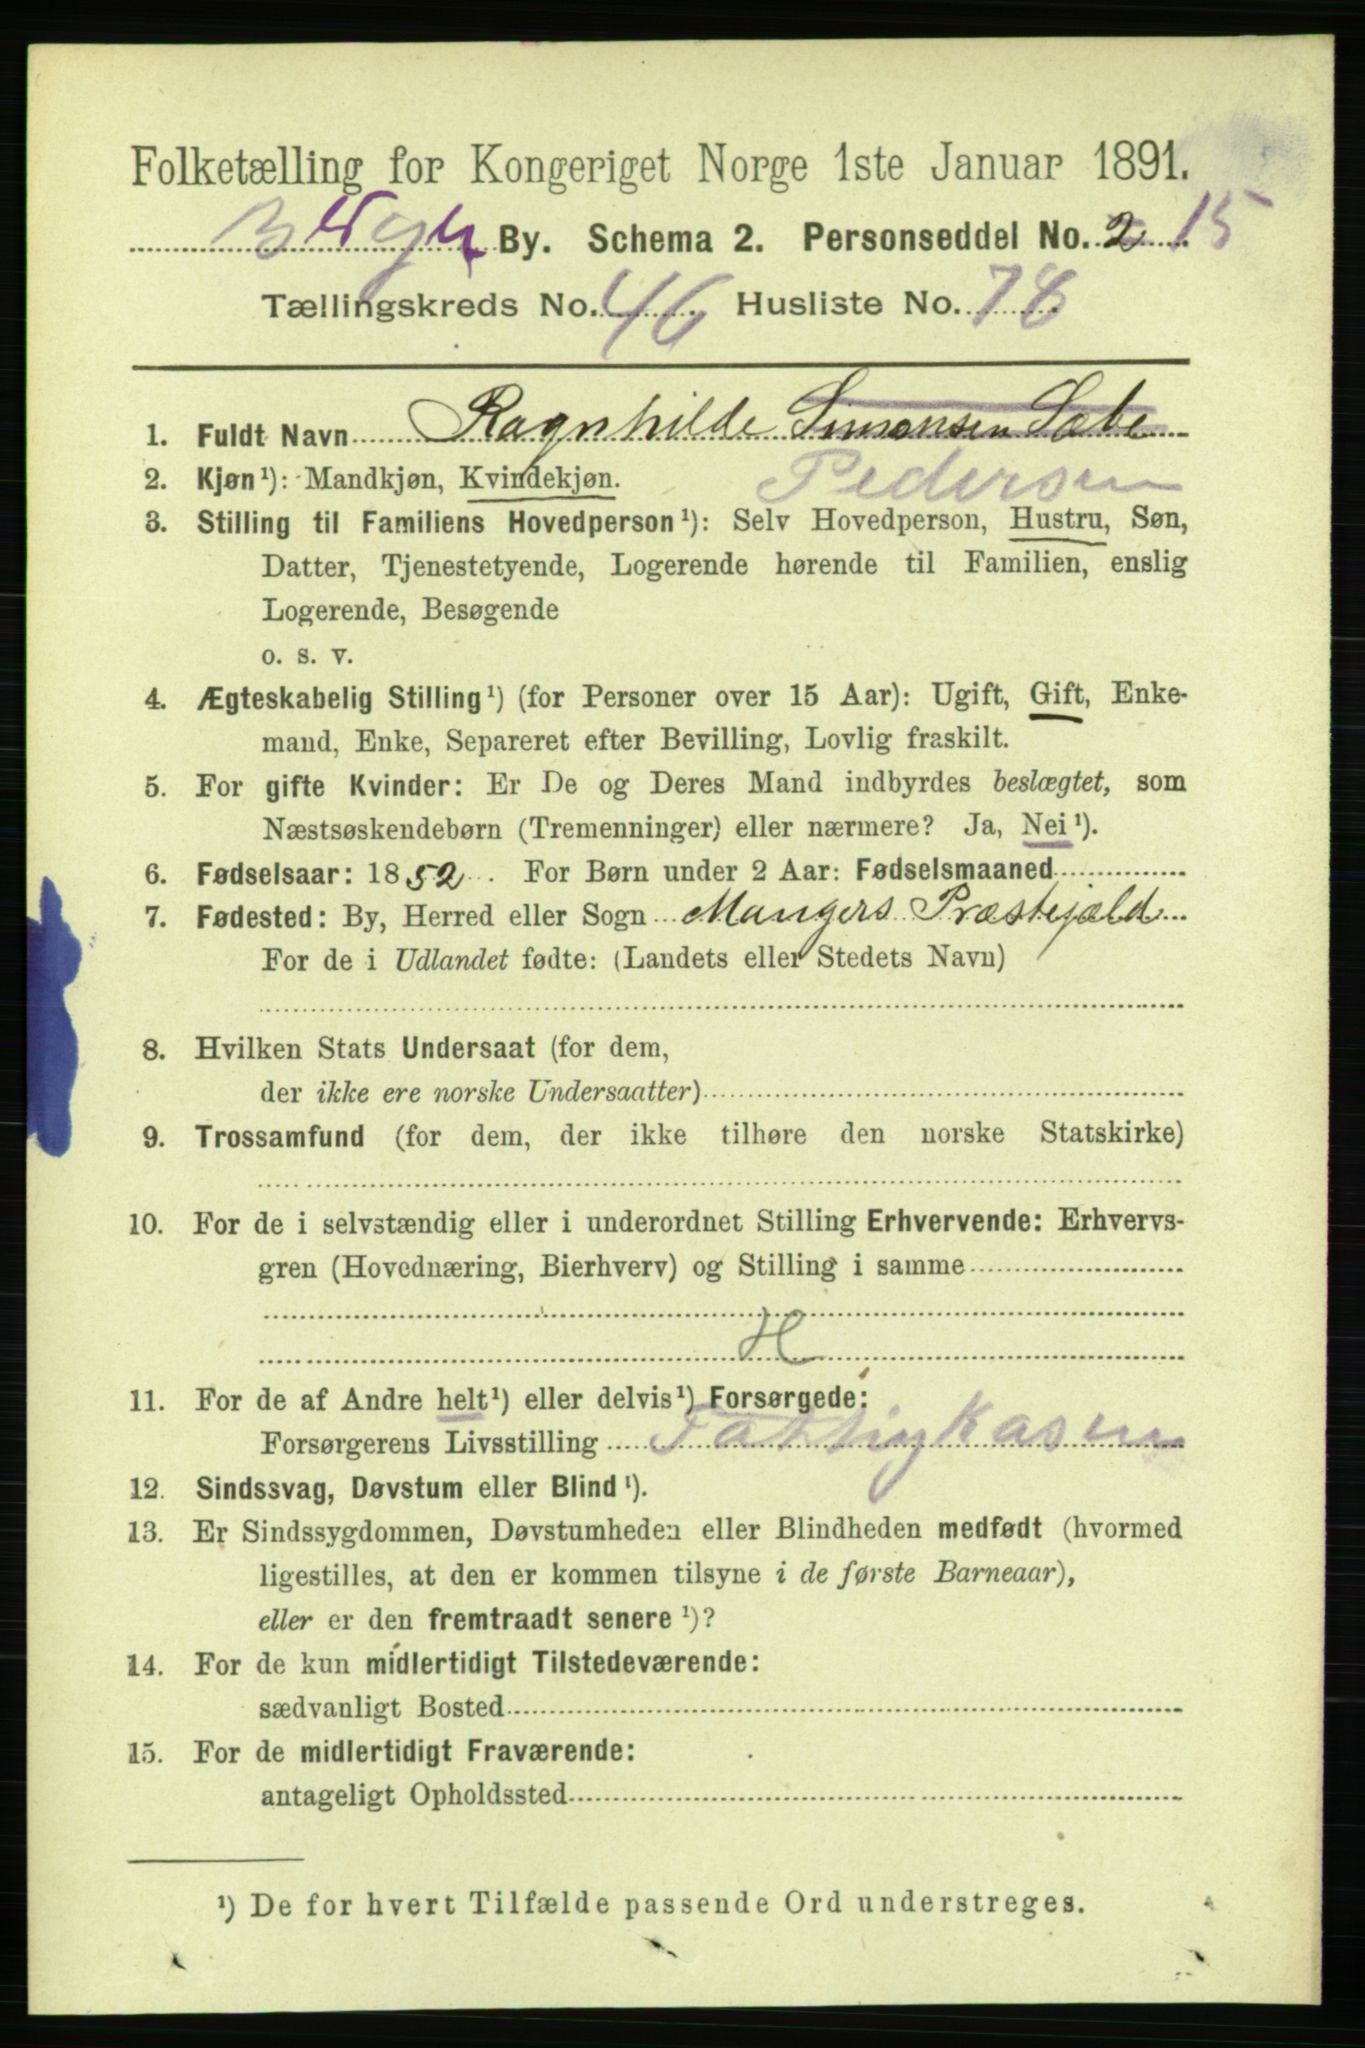 Folketælling for Kongeriget Norge 1ste Januar 1891.
Bergen By. Schema 2. Personseddel No. 2 15
Tællingskreds No. 46 Husliste No. 78
1. Fuldt Navn Ragnhilde Simonsen Sæbe
Pedersen
2. Kjøn¹): Mandkjøn, Kvindekjøn.
3. Stilling til Familiens Hovedperson¹): Selv Hovedperson, Hustru, Søn,
Datter, Tjenestetyende, Logerende hørende til Familien, enslig
Logerende, Besøgende
o. s. v.
4. Ægteskabelig Stilling¹) (for Personer over 15 Aar): Ugift, Gift, Enke-
mand, Enke, Separeret efter Bevilling, Lovlig fraskilt.
5. For gifte Kvinder: Er De og Deres Mand indbyrdes beslægtet, som
Næstsøskendebørn (Tremenninger) eller nærmere? Ja, Nei¹).
6. Fødselsaar: 1852. For Børn under 2 Aar: Fødselsmaaned
7. Fødested: By, Herred eller Sogn Mangers Præstejæld
For de i Udlandet fødte: (Landets eller Stedets Navn)
8. Hvilken Stats Undersaat (for dem,
der ikke ere norske Undersaatter)
9. Trossamfund (for dem, der ikke tilhøre den norske Statskirke)
10. For de i selvstændig eller i underordnet Stilling Erhvervende: Erhvervs-
gren (Hovednæring, Bierhverv) og Stilling i samme
H
11. For de af Andre helt¹) eller delvis¹) Forsørgede:
Forsørgerens Livsstilling Fattigkasen
12. Sindssvag, Døvstum eller Blind¹).
13. Er Sindssygdommen, Døvstumheden eller Blindheden medfødt (hvormed
ligestilles, at den er kommen tilsyne i de første Barneaar),
eller er den fremtraadt senere¹)?
14. For de kun midlertidigt Tilstedeværende:
sædvanligt Bosted
15. For de midlertidigt Fraværende:
antageligt Opholdssted
¹) De for hvert Tilfælde passende Ord understreges.